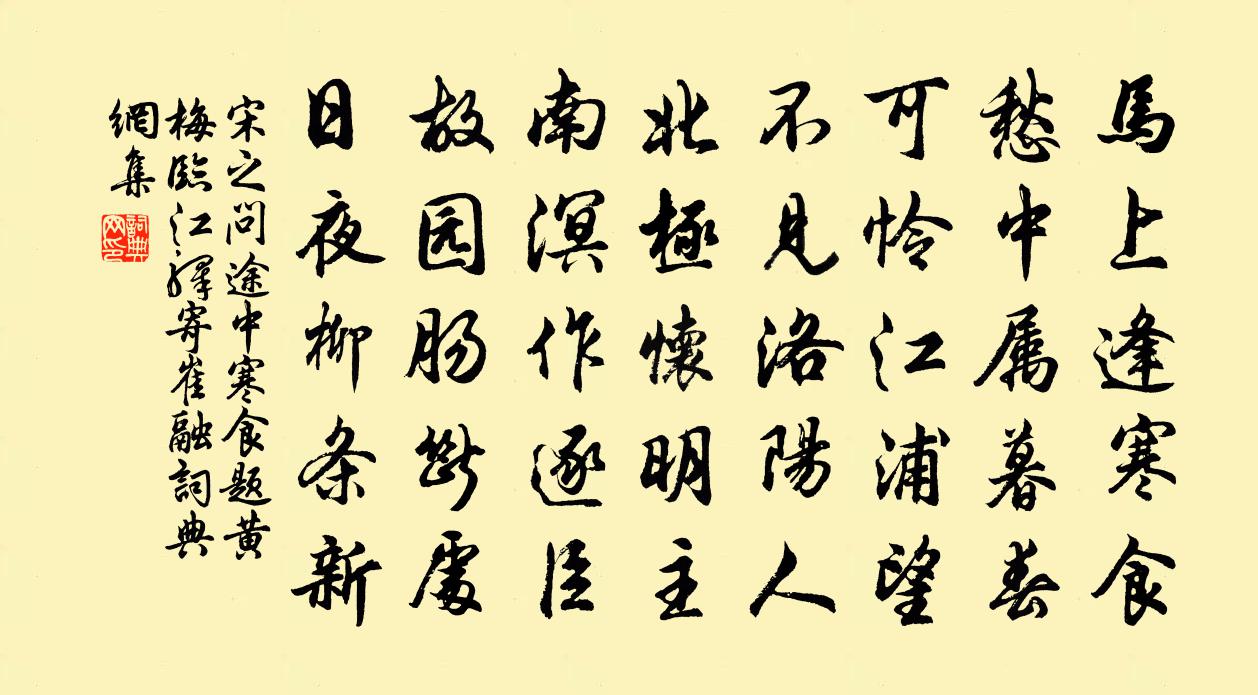 馬上逢寒食
愁中属暮春
可怜江浦望
不見洛陽人
北極懷明主
南溟作逐臣
故园肠斷處
日夜柳条新
宋之问途中寒食题黄
梅臨江驛寄崔融詞典
網集
詞典
网印